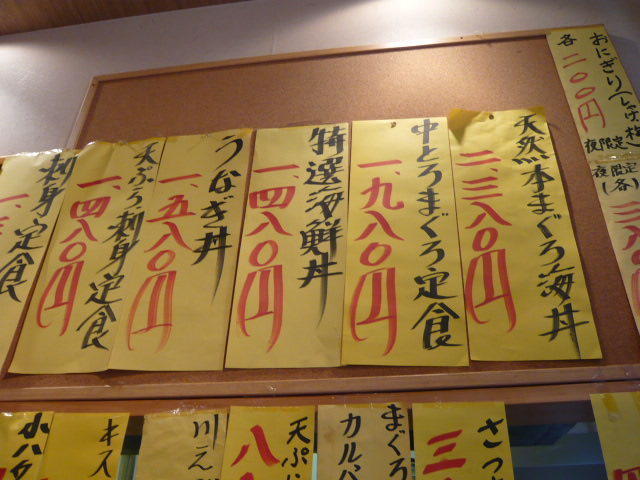 おにぎり(しゃけ・梅)
各二〇〇円
夜限定
夜限定
天然本まぐろ海丼
二、三八〇円
中とろまぐろ定食
一、九八〇円
特選海鮮丼
一、四八〇円
うなぎ丼
一、五八〇円
天ぷら刺身定食
一、四八〇円
刺身定食
さつ
三
まぐろ
カルパ
天ぷら
八八
川え
キス
小ハダ